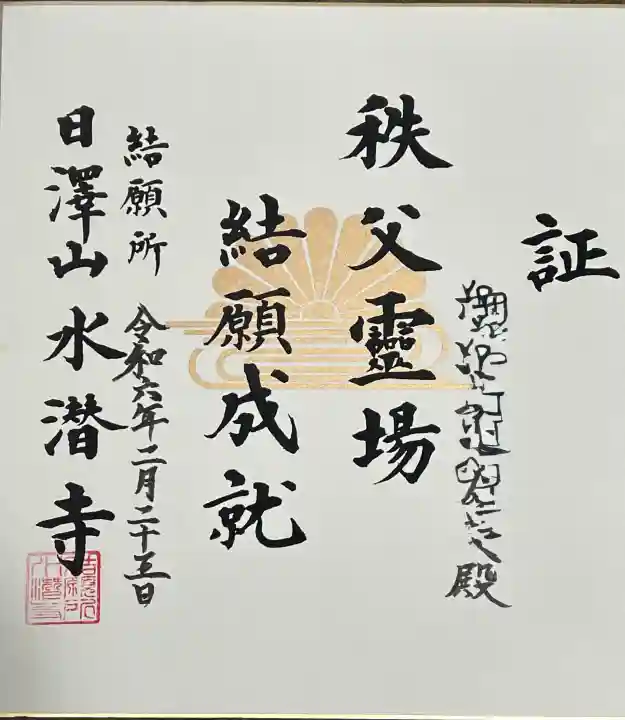 証
殿
秩父靈場
結願成就
結願所 令和六年二月二十五日
日澤山水潜寺